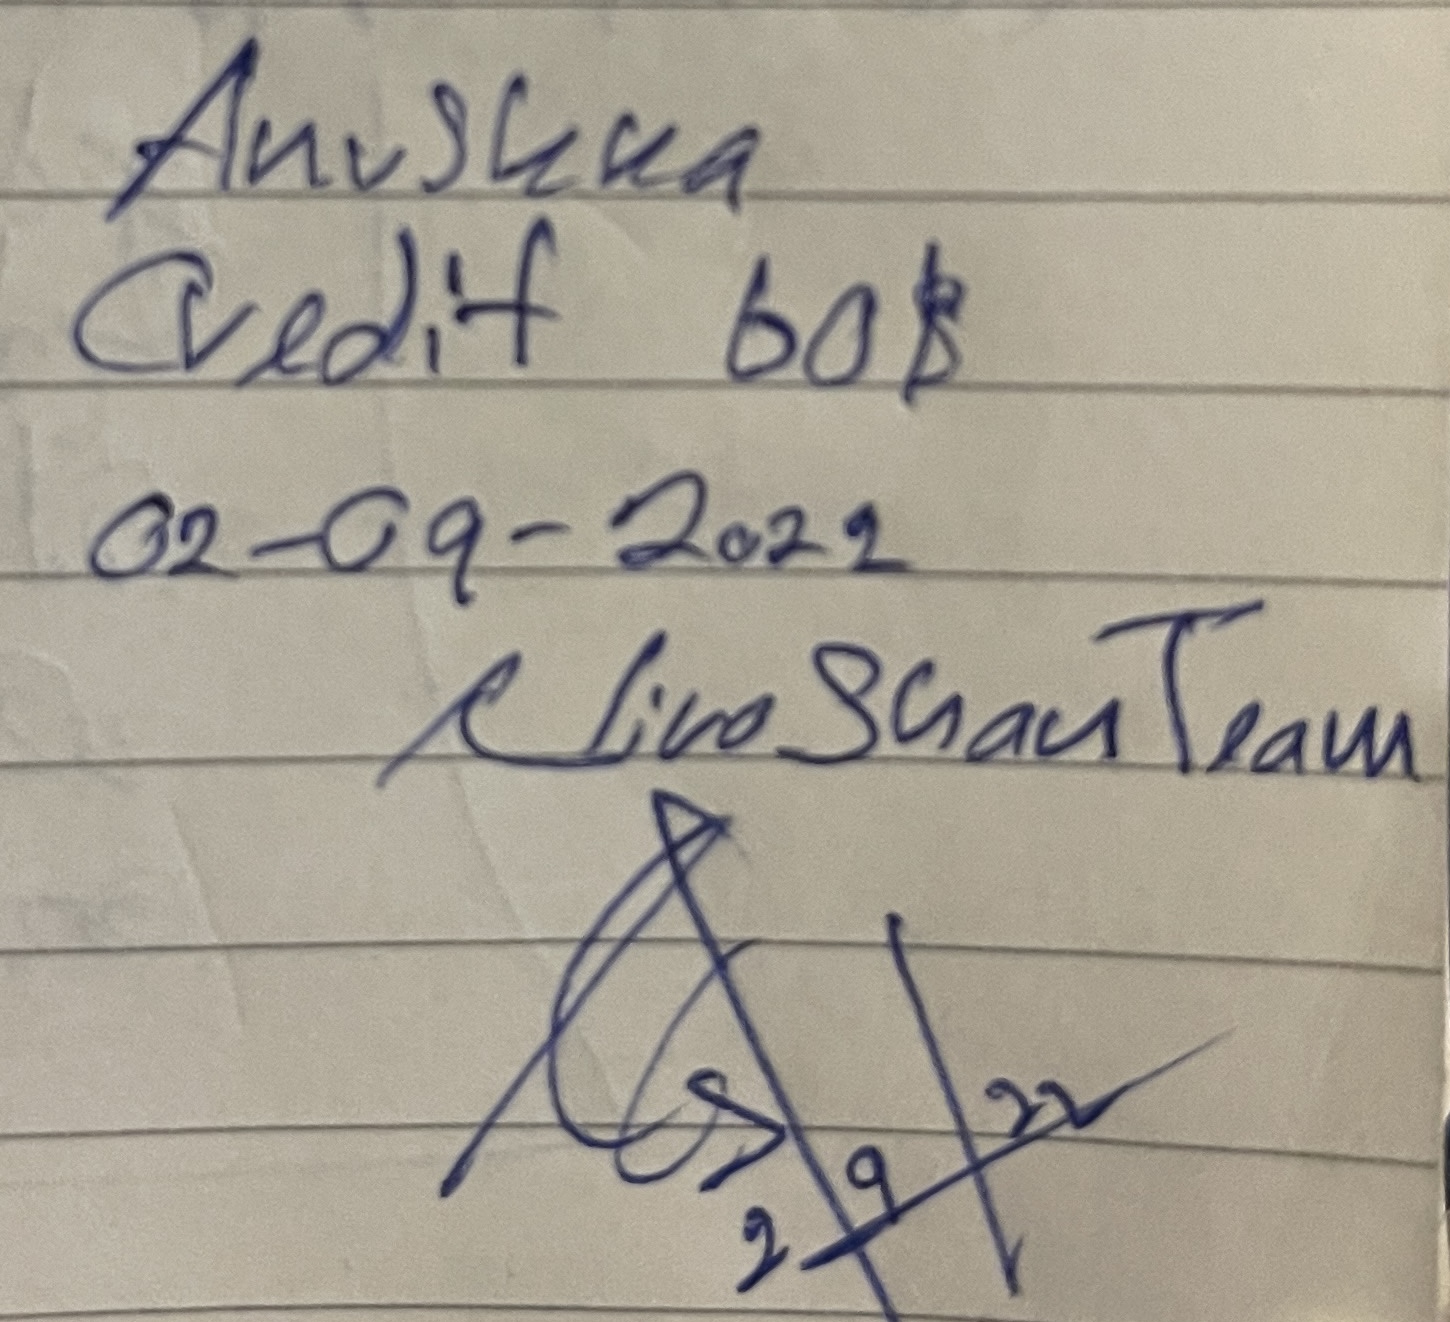 Anushka
Credit 60$
02-09-2022
Niroshan Team
2 9 22